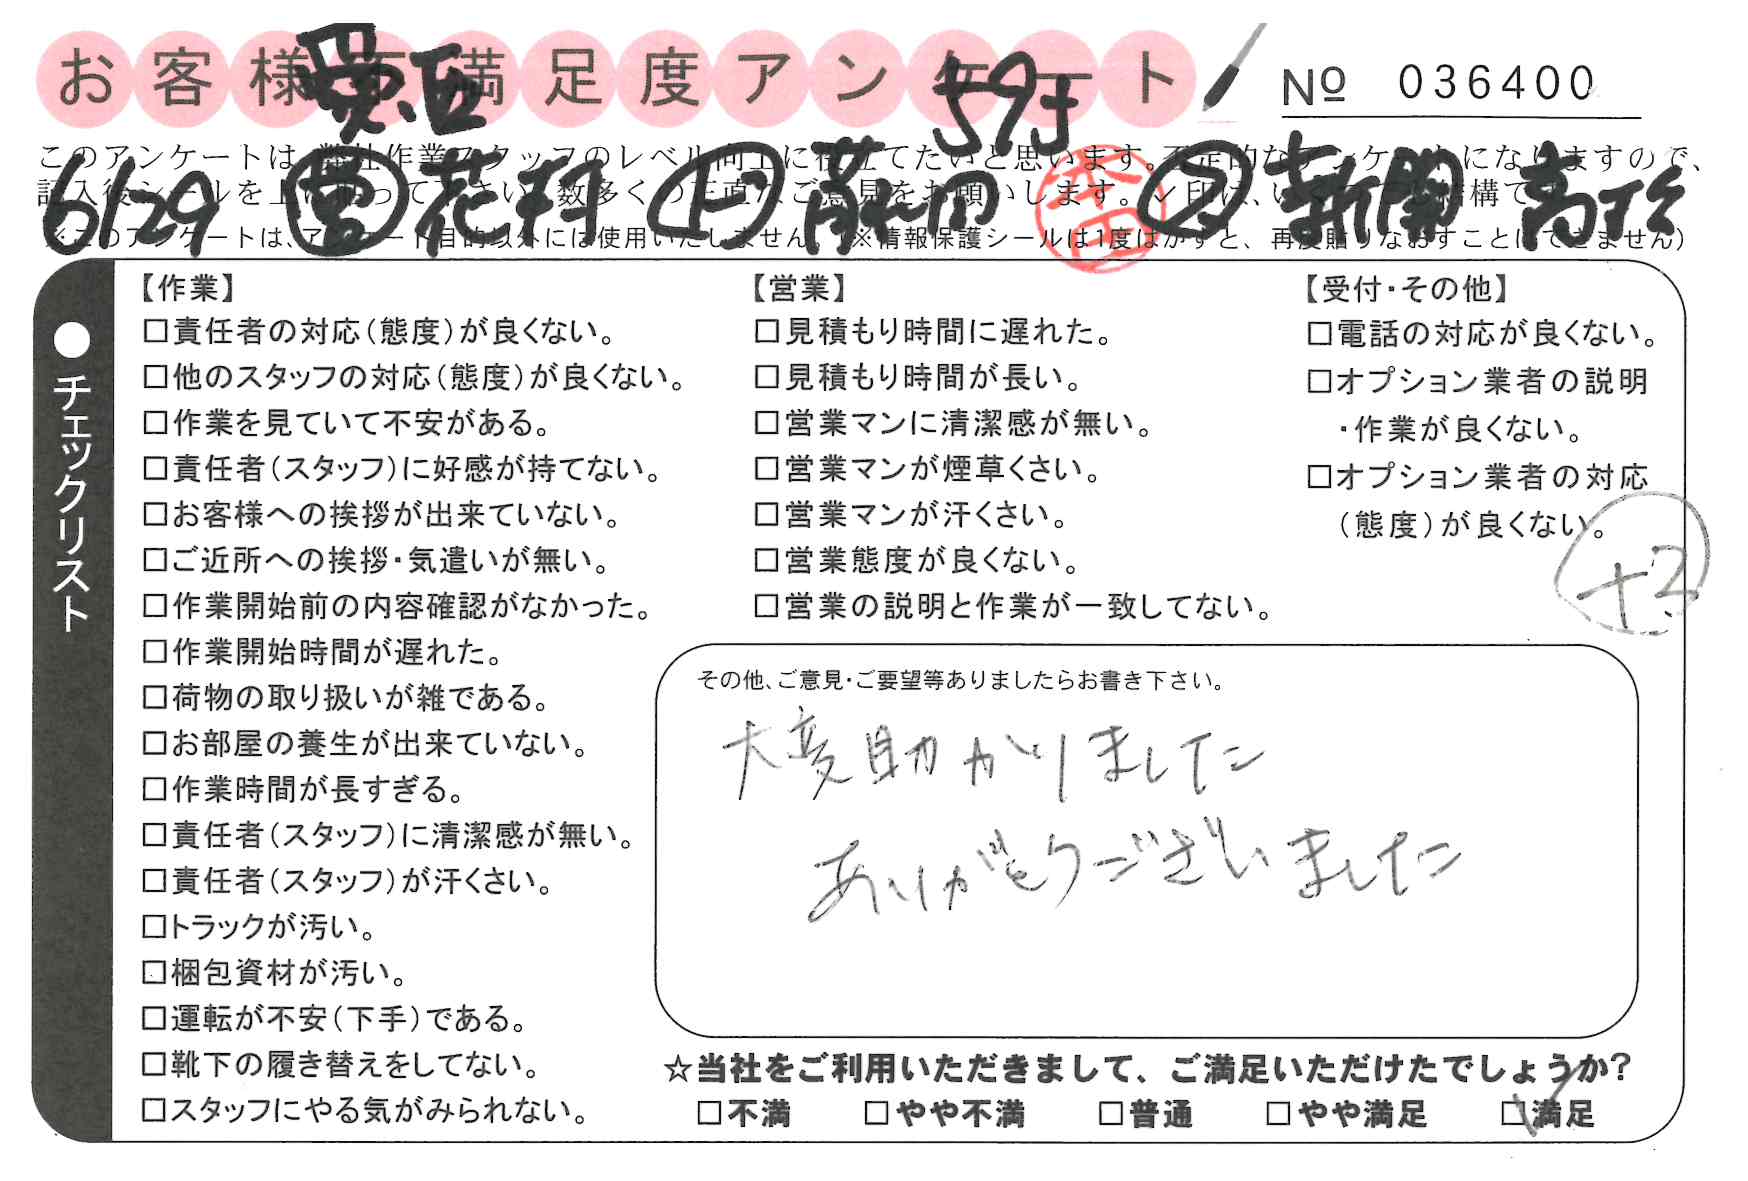 お客様不満足度アンケート
№ 036400
愛西
このアンケートは、弊社作業スタッフのレベル向上に役立てたいと思います。否定的なアンケートになりますので、
記入後シールを上に貼って下さい。数多くの正直なご意見をお願いします。✓印は、いくつでも結構です。
6/29 営 花村 上 前田 2 新開 高松
※このアンケートは、アンケート目的以外には使用いたしません。(※情報保護シールは1度はがすと、再度貼りなおすことはできません)
●チェックリスト
【作業】
□責任者の対応(態度)が良くない。
□他のスタッフの対応(態度)が良くない。
□作業を見ていて不安がある。
□責任者(スタッフ)に好感が持てない。
□お客様への挨拶が出来ていない。
□ご近所への挨拶・気遣いが無い。
□作業開始前の内容確認がなかった。
□作業開始時間が遅れた。
□荷物の取り扱いが雑である。
□お部屋の養生が出来ていない。
□作業時間が長すぎる。
□責任者(スタッフ)に清潔感が無い。
□責任者(スタッフ)が汗くさい。
□トラックが汚い。
□梱包資材が汚い。
□運転が不安(下手)である。
□靴下の履き替えをしてない。
□スタッフにやる気がみられない。
【営業】
□見積もり時間に遅れた。
□見積もり時間が長い。
□営業マンに清潔感が無い。
□営業マンが煙草くさい。
□営業マンが汗くさい。
□営業態度が良くない。
□営業の説明と作業が一致してない。
【受付・その他】
□電話の対応が良くない。
□オプション業者の説明
・作業が良くない。
□オプション業者の対応
(態度)が良くない。
+2
その他、ご意見・ご要望等ありましたらお書き下さい。
大変助かりました
ありがとうございました
☆当社をご利用いただきまして、ご満足いただけたでしょうか?
□不満 □やや不満 □普通 □やや満足 ☑満足